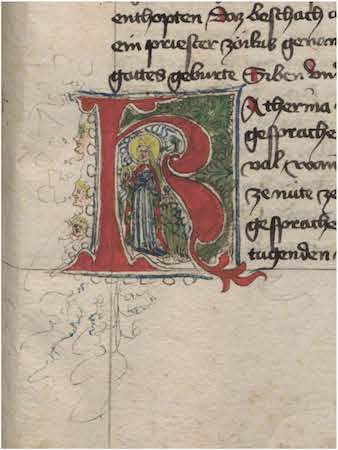 enthopten Doz beschach
ein priester zoilus genan
gottes geburte Siben
K
Atherina
gesprache
val wan
ze nute ze
gesprache
tugenden